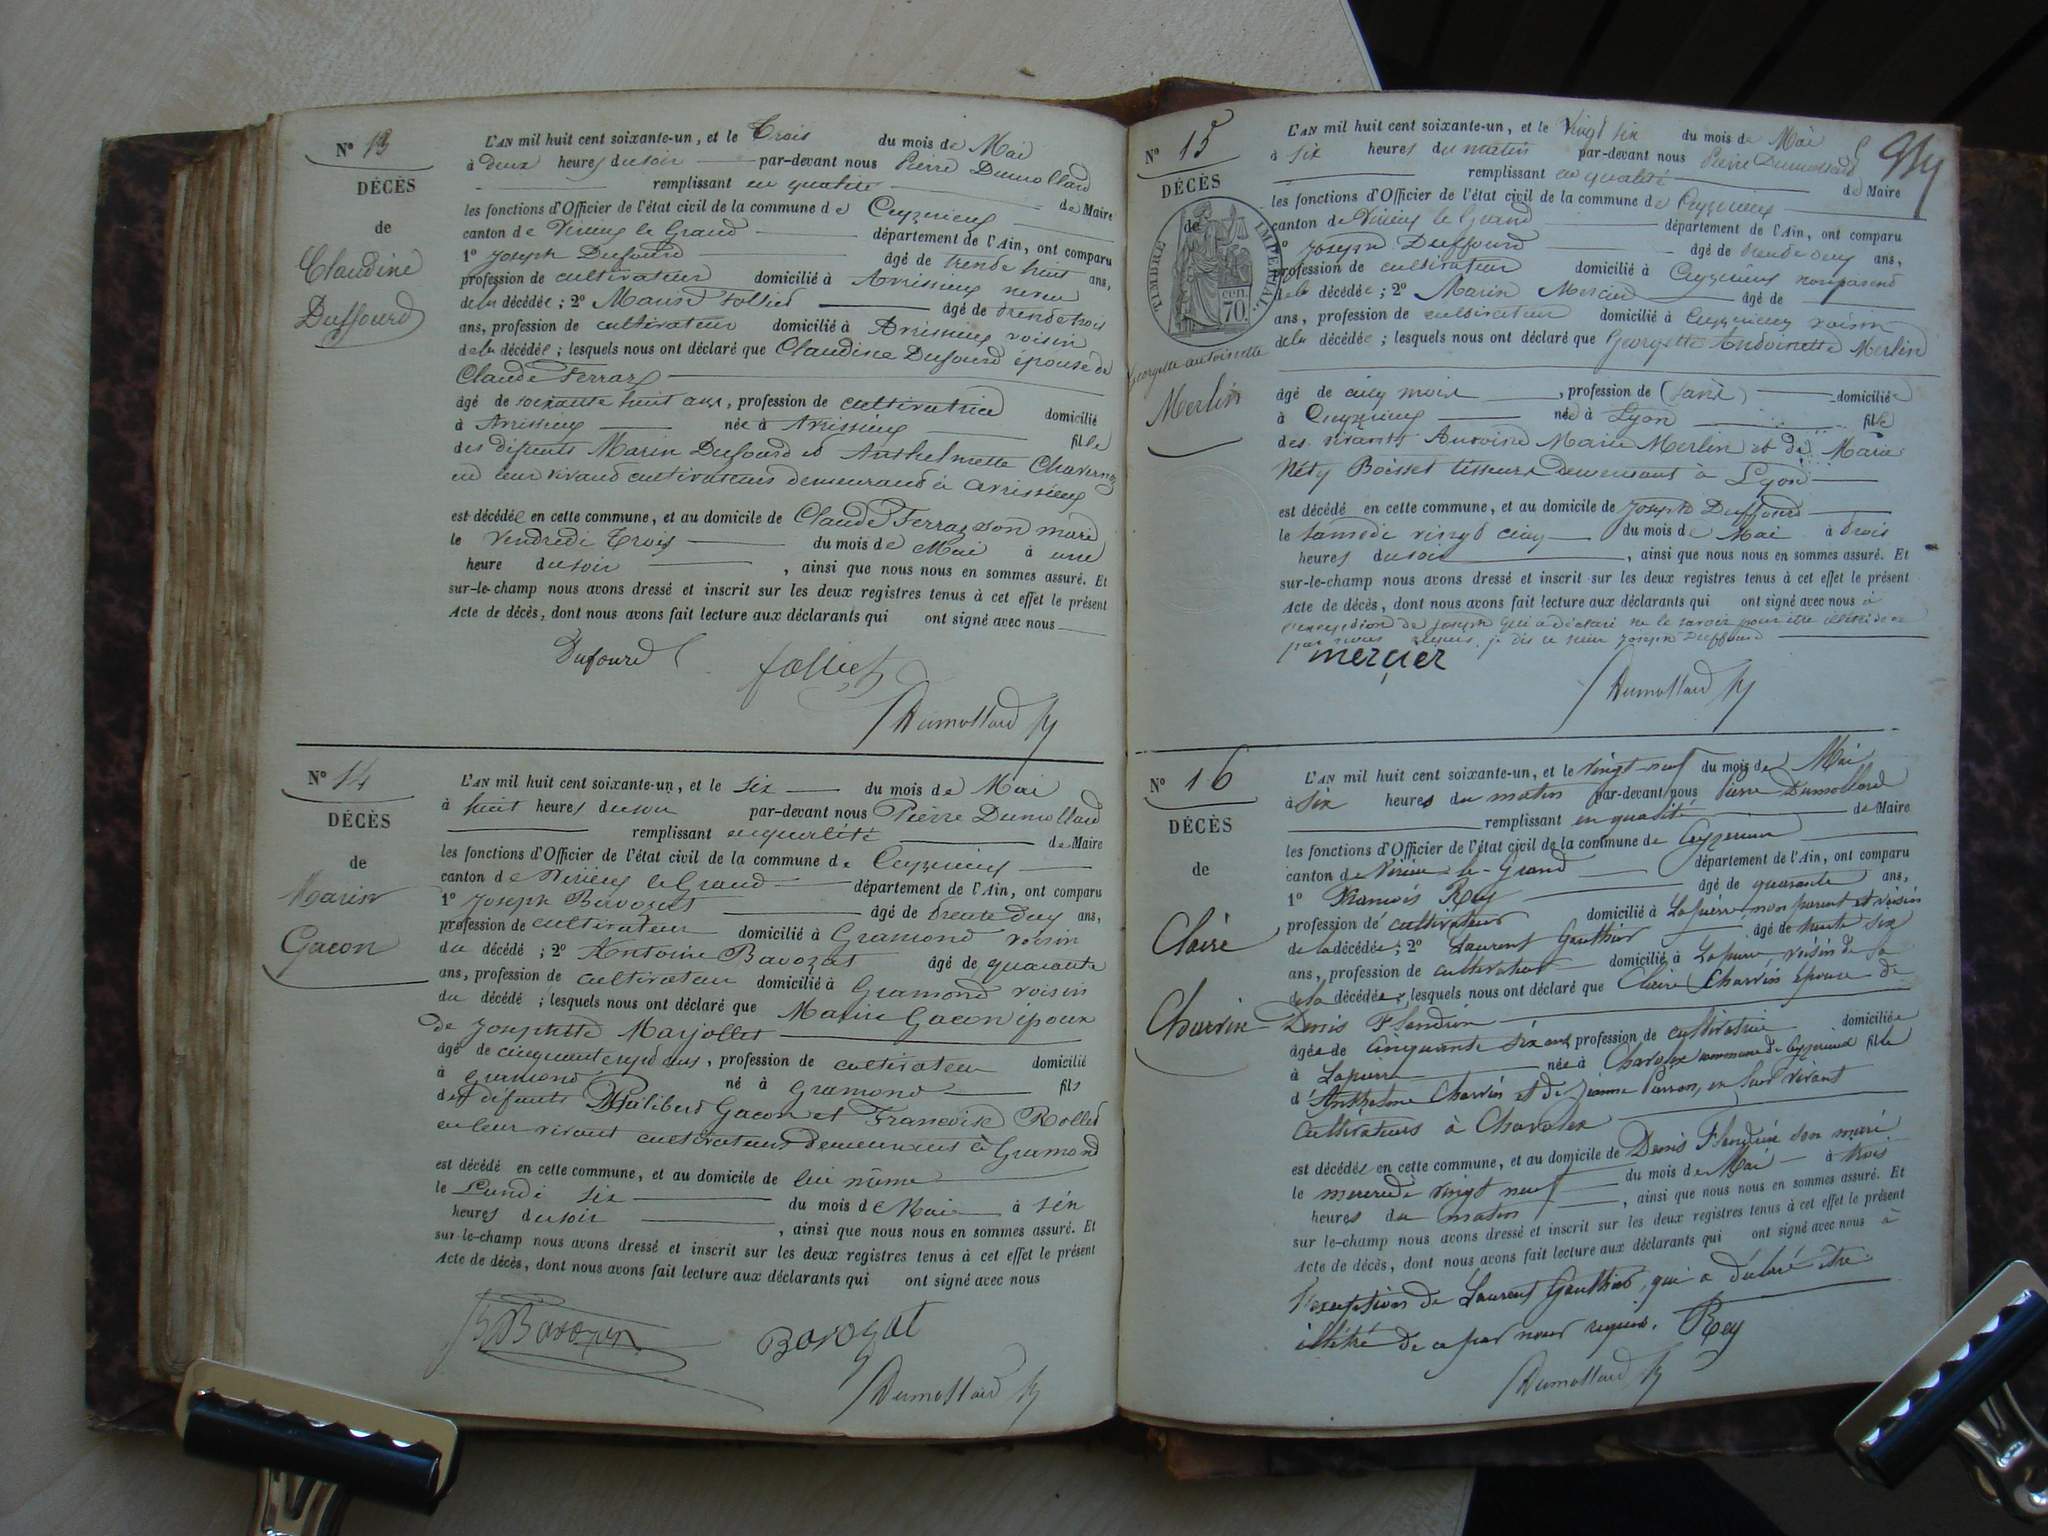 Nº 13
DÉCÈS
de
Claudine
Duffourd
L'AN mil huit cent soixante-un, et le Trois du mois de Mai
à deux heures du soir par-devant nous Pierre Dumollard
remplissant en qualité de Maire
les fonctions d'Officier de l'état civil de la commune de Ceyzerieu
canton de Virieu le Grand département de l'Ain, ont comparu
1º Joseph Dufourd âgé de trente huit ans,
profession de cultivateur domicilié à Avrissieu neveu
de la décédée ; 2º Follied âgé de trente trois
ans, profession de cultivateur domicilié à Avrissieu voisin
de la décédée ; lesquels nous ont déclaré que Claudine Dufourd épouse de
Claude Ferraz
âgé de soixante huit ans, profession de cultivatrice domicilié
à Avrissieu née à Avrissieu fille
des défunts Marin Dufourd et Anthelmette
en leur vivant cultivateurs demeurand à Avrissieu
est décédée en cette commune, et au domicile de Claude Ferraz son mari
le Vendredi trois du mois de Mai à une
heure du soir , ainsi que nous nous en sommes assuré. Et
sur-le-champ nous avons dressé et inscrit sur les deux registres tenus à cet effet le présent
Acte de décès, dont nous avons fait lecture aux déclarants qui ont signé avec nous
Dufourd folliet
Dumollard
Nº 14
DÉCÈS
de
Marin
Gacon
L'AN mil huit cent soixante-un, et le six du mois de Mai
à huit heures du soir par-devant nous Pierre Dumollard
remplissant en qualité de Maire
les fonctions d'Officier de l'état civil de la commune de Ceyzerieu
canton de Virieu le Grand département de l'Ain, ont comparu
1º Joseph Bavozat âgé de trente deux ans,
profession de cultivateur domicilié à Gramond voisin
du décédé ; 2º Antoine Bavozat âgé de quarante
ans, profession de cultivateur domicilié à Gramond voisin
du décédé ; lesquels nous ont déclaré que Marin Gacon époux
de Josephte Marjollet
âgé de cinquante sept ans, profession de cultivateur domicilié
à Gramond né à Gramond fils
des défunts Philibert Gacon et Francoise Rollet
en leur vivant cultivateurs demeurant à Gramond
est décédé en cette commune, et au domicile de lui même
le Lundi six du mois de Mai à six
heures du soir , ainsi que nous nous en sommes assuré. Et
sur-le-champ nous avons dressé et inscrit sur les deux registres tenus à cet effet le présent
Acte de décès, dont nous avons fait lecture aux déclarants qui ont signé avec nous
Bavozat
Dumollard
Nº 15
DÉCÈS
de
TIMBRE IMPERIAL
70 cen.
Georgette antoinette
Merlin
L'AN mil huit cent soixante-un, et le Vingt six du mois de Mai
à six heures du matin par-devant nous Pierre Dumollard
remplissant en qualité de Maire
les fonctions d'Officier de l'état civil de la commune de Ceyzerieu
canton de Virieu le Grand département de l'Ain, ont comparu
1º Joseph Duffourd âgé de trente deux ans,
profession de cultivateur domicilié à Ceyzerieu non parend
de la décédée ; 2º Marin Mercier âgé de
ans, profession de cultivateur domicilié à Ceyzerieu voisin
de la décédée ; lesquels nous ont déclaré que Georgette Antoinette Merlin
âgé de cinq mois , profession de (sans) domiciliée
à Ceyzerieu née à Lyon fille
des vivants Antoine Marie Merlin et de Marie
Boisset tisseurs demeurant à Lyon
est décédé en cette commune, et au domicile de Joseph Duffourd
le samedi vingt cinq du mois de Mai à trois
heures du soir , ainsi que nous nous en sommes assuré. Et
sur-le-champ nous avons dressé et inscrit sur les deux registres tenus à cet effet le présent
Acte de décès, dont nous avons fait lecture aux déclarants qui ont signé avec nous à
l'exception de Joseph qui a déclaré ne le savoir pour être illétré de ce
par nous requis, je dis ce sieur Joseph Duffourd
mercier
Dumollard
Nº 16
DÉCÈS
de
Claire
Charvin
L'AN mil huit cent soixante-un, et le vingt-neuf du mois de Mai
à six heures du matin par-devant nous Pierre Dumollard
remplissant en qualité de Maire
les fonctions d'Officier de l'état civil de la commune de Ceyzerieu
canton de Virieu-le-Grand département de l'Ain, ont comparu
1º François Rey âgé de quarante ans,
profession de cultivateur domicilié à Lapierre, non parent et voisin
de la décédée ; 2º Laurent Gauthier âgé de trente six
ans, profession de cultivateur domicilié à Lapierre, voisin de la
de la décédée ; lesquels nous ont déclaré que Claire Charvin épouse de
Denis Flandrin
âgée de cinquante six ans profession de cultivatrice domiciliée
à Lapierre née à Charolex commune de Ceyzerieu fille
d'Anthelme Charvin et de Jeanne Perron, en leur vivant
cultivateurs à Charolex
est décédée en cette commune, et au domicile de Denis Flandrin son mari
le mercredi vingt neuf du mois de Mai à trois
heures du matin , ainsi que nous nous en sommes assuré. Et
sur le-champ nous avons dressé et inscrit sur les deux registres tenus à cet effet le présent
Acte de décès, dont nous avons fait lecture aux déclarants qui ont signé avec nous à
l'exception de Laurent Gauthier, qui a déclaré être
illétré de ce par nous requis. Rey
Dumollard